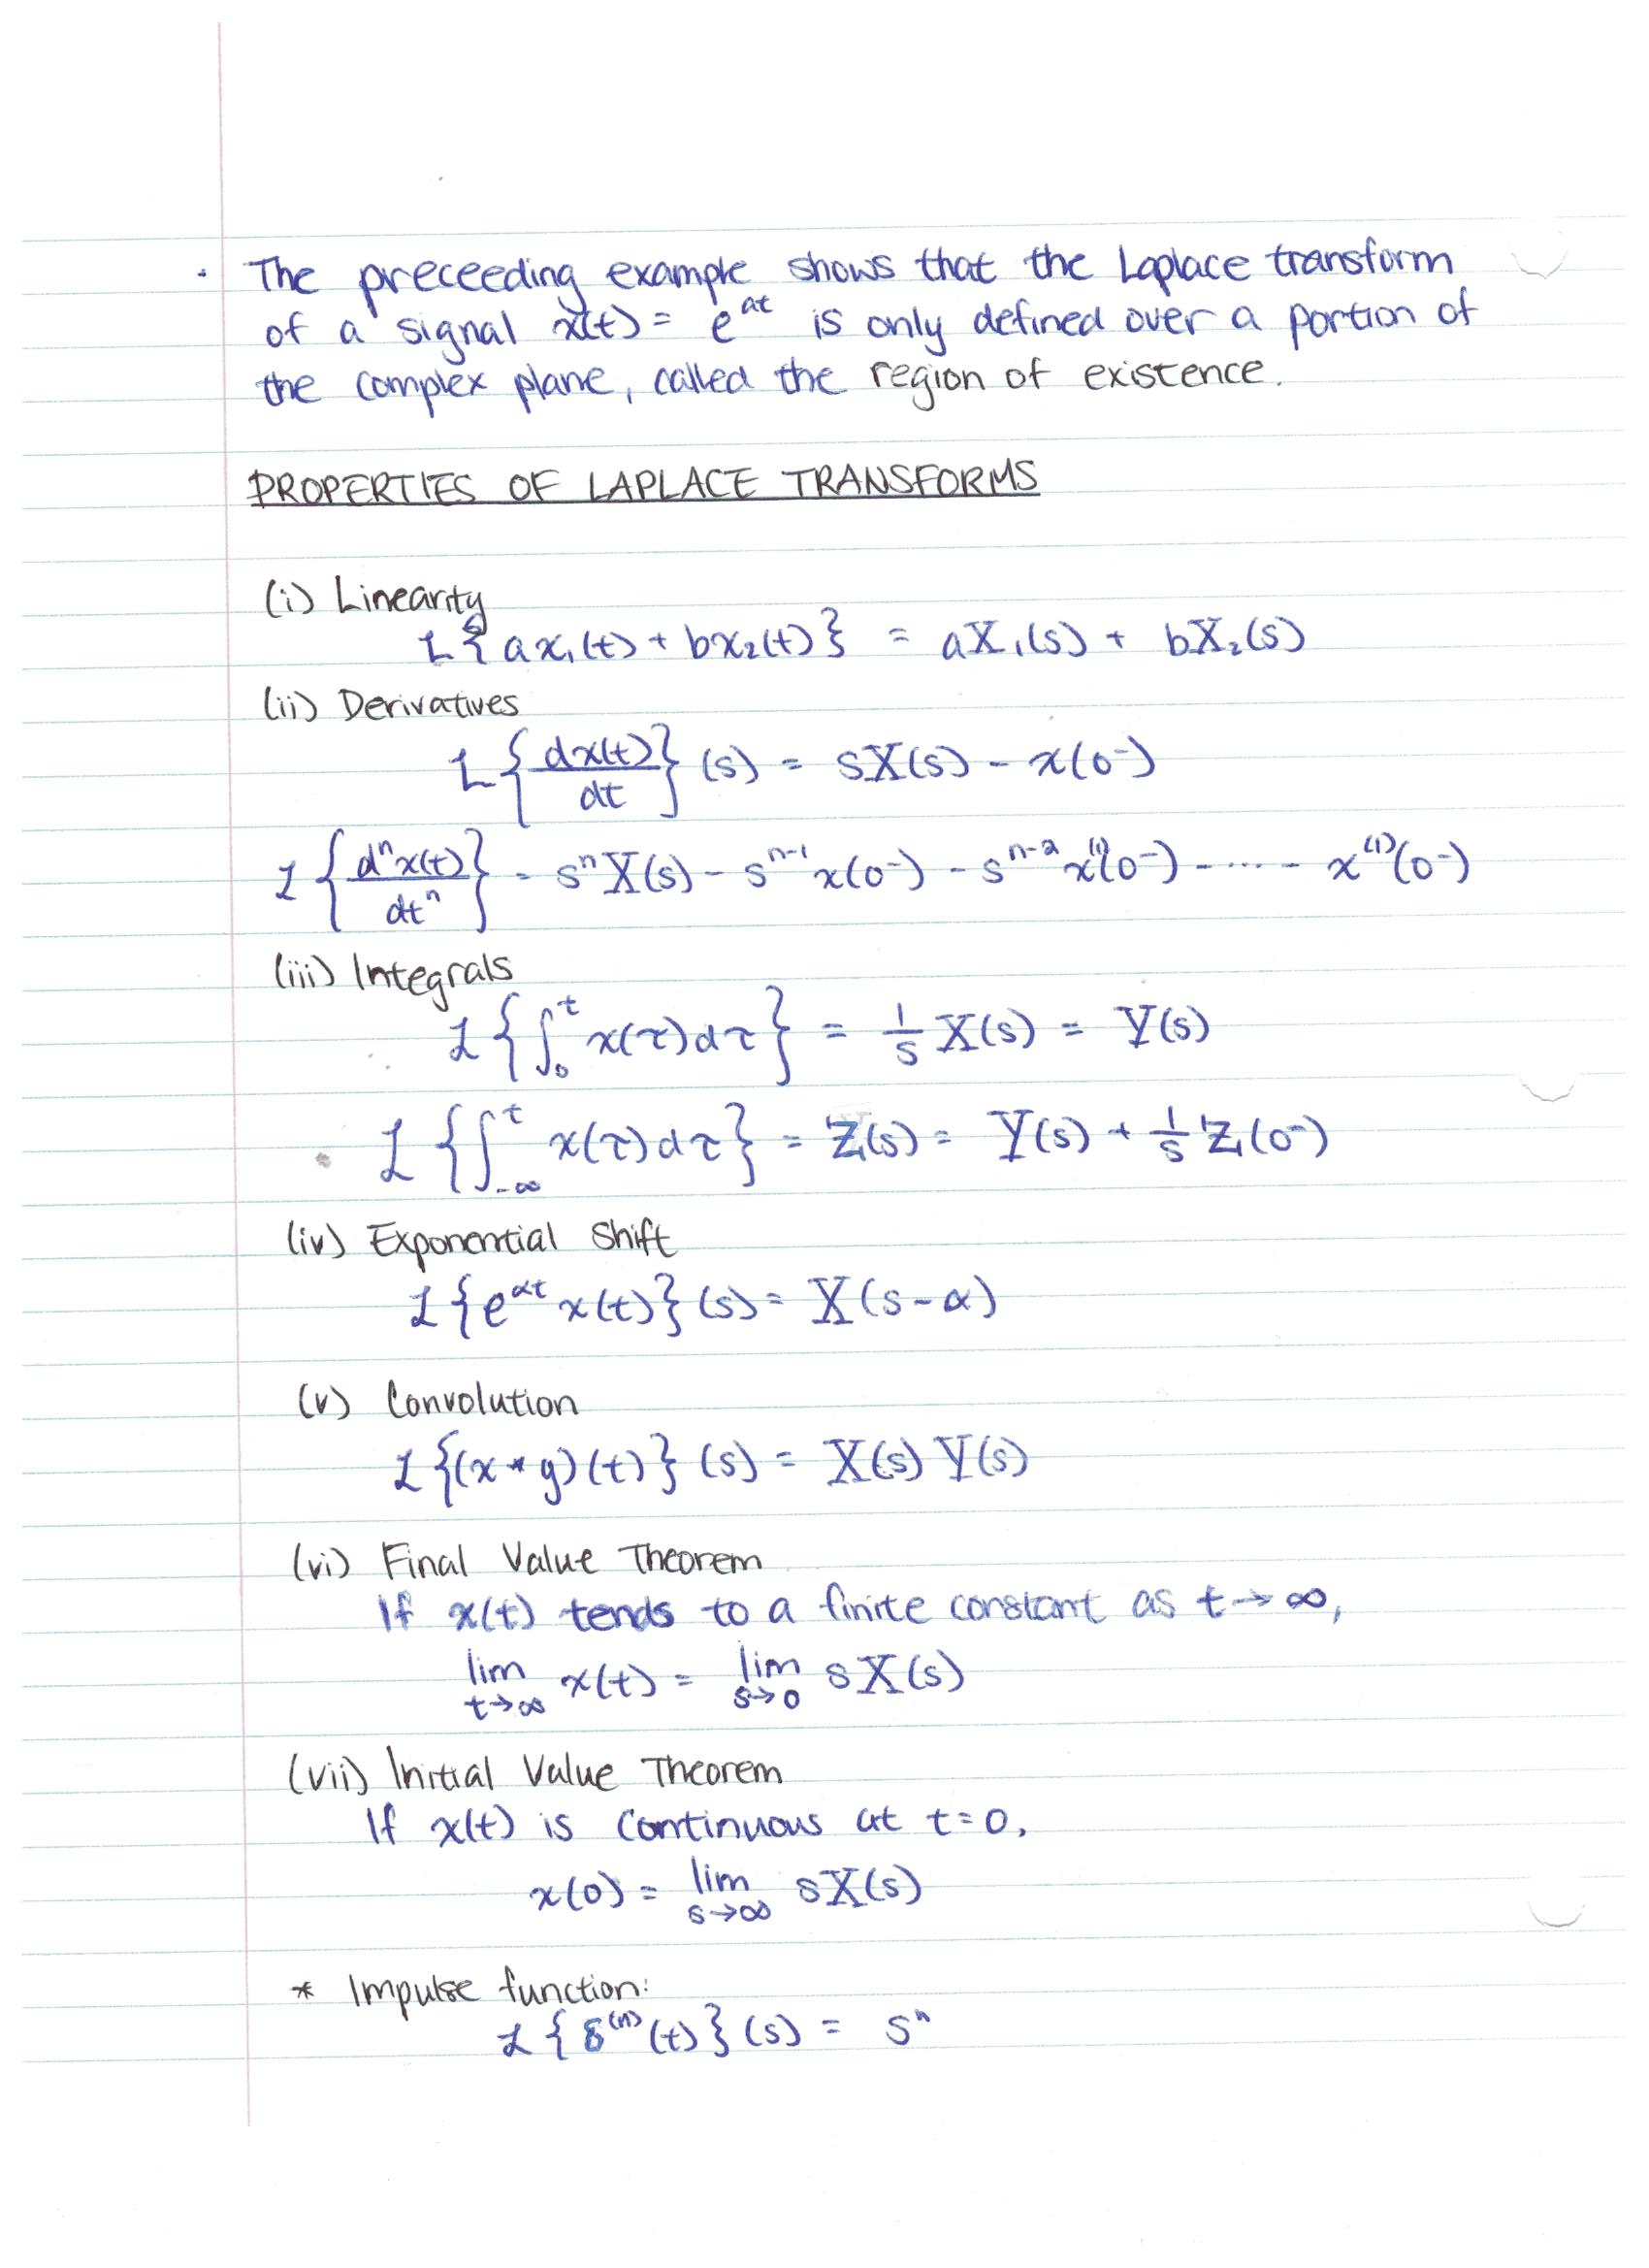 · The preceeding example shows that the Laplace transform
of a signal x(t) = e^{at} is only defined over a portion of
the complex plane, called the region of existence.
PROPERTIES OF LAPLACE TRANSFORMS
(i) Linearity
ℒ{ax₁(t) + bx₂(t)} = aX₁(s) + bX₂(s)
(ii) Derivatives
ℒ{dx(t)/dt}(s) = sX(s) - x(0⁻)
ℒ{dⁿx(t)/dtⁿ} = sⁿX(s) - sⁿ⁻¹x(0⁻) - sⁿ⁻²x⁽¹⁾(0⁻) - ..... - x⁽¹⁾(0⁻)
(iii) Integrals
ℒ{∫₀ᵗ x(τ)dτ} = 1/s X(s) = Y(s)
ℒ{∫_{-∞}^t x(τ)dτ} = Z(s) = Y(s) + 1/s Z(0⁻)
(iv) Exponential Shift
ℒ{e^{αt} x(t)}(s) = X(s-α)
(v) Convolution
ℒ{(x*y)(t)}(s) = X(s) Y(s)
(vi) Final Value Theorem
If x(t) tends to a finite constant as t→∞,
lim_{t→∞} x(t) = lim_{s→0} sX(s)
(vii) Initial Value Theorem
If x(t) is continuous at t=0,
x(0) = lim_{s→∞} sX(s)
* Impulse function:
ℒ{δ⁽ⁿ⁾(t)}(s) = sⁿ